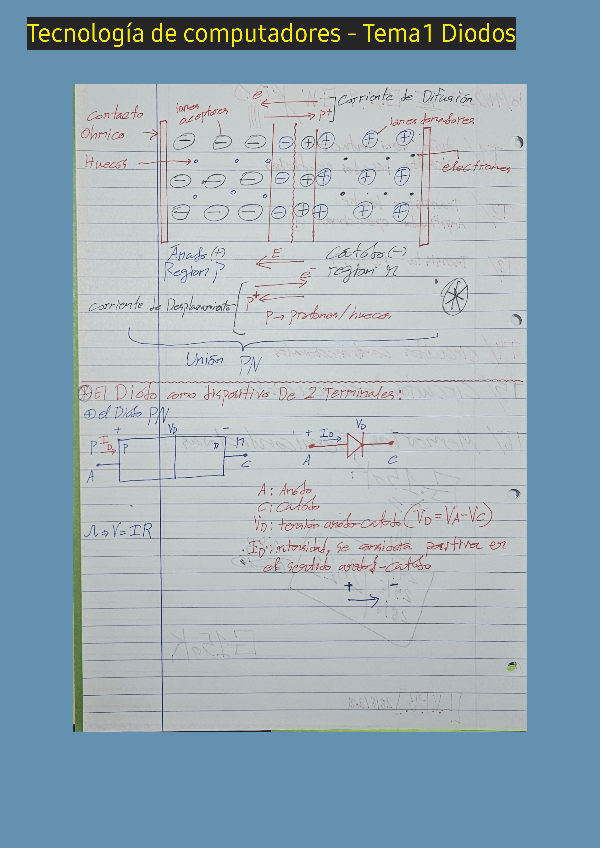 Tecnología de computadores - Tema1 Diodos
e⁻
p+
Corriente de Difusión
Contacto
Ohmico
iones
aceptores
iones donadores
Huecos
electrones
Ánodo (+)
Region P
E
Cátodo (-)
región n
Corriente de Desplazamiento
e⁻
p+
P → protones/huecos
Unión PN
El Diodo como dispositivo De 2 Terminales:
el Diodo PN
+ VD -
P ID P n n
A C
+ ID VD -
A C
A: Anodo
C: Catodo
VD: tensión anodo-catodo (VD = VA - VC)
V = IR
ID: intensidad, se considera positiva en
el sentido anodo-catodo
+ → -